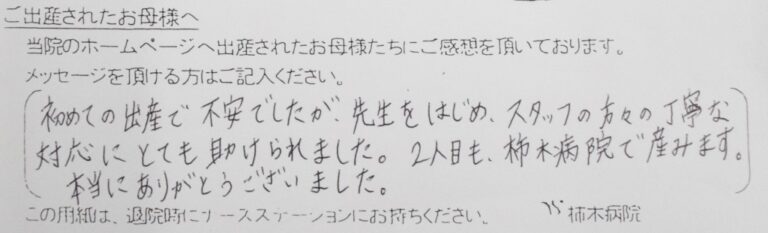 ご出産されたお母様へ
当院のホームページへ出産されたお母様たちにご感想を頂いております。
メッセージを頂ける方はご記入ください。
初めての出産で不安でしたが、先生をはじめ、スタッフの方々の丁寧な
対応にとても助けられました。2人目も、柿木病院で産みます。
本当にありがとうございました。
この用紙は、退院時にナースステーションにお持ちください。 柿木病院